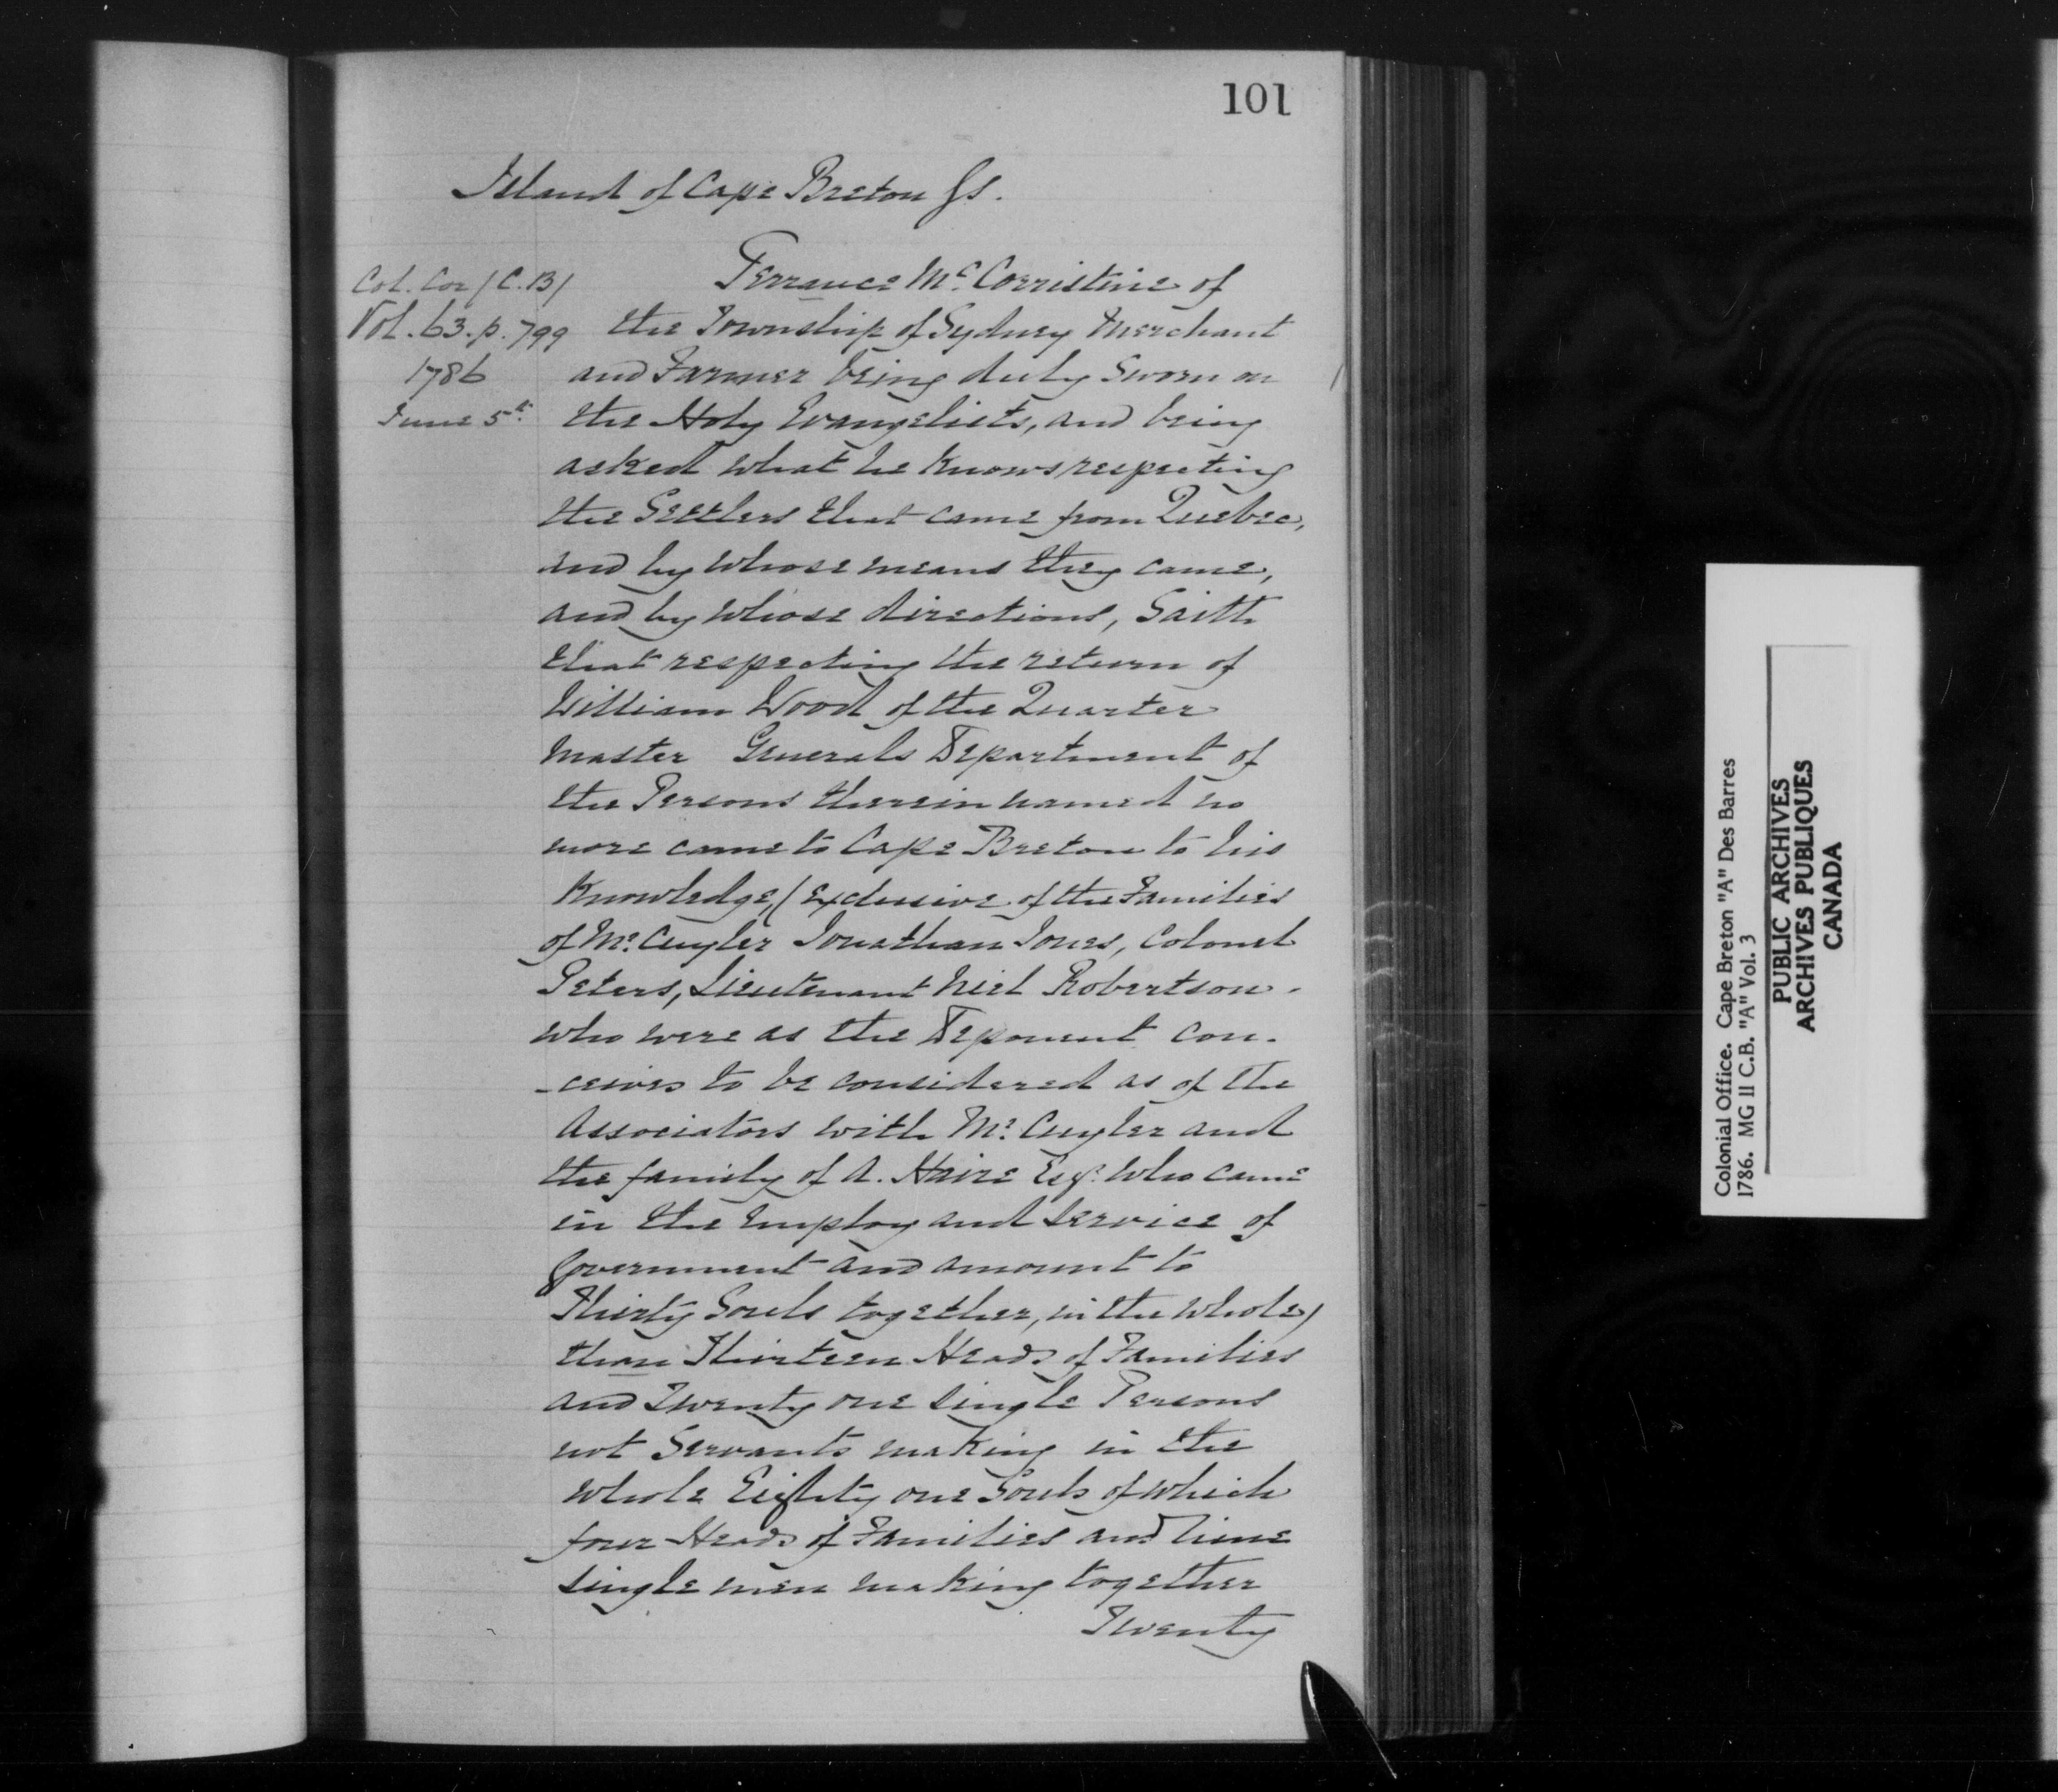 101
Island of Cape Breton Ss.
Col. Cor (C.B)
Vol. 63. p. 799
1786
June 5th
Terrance Mc. Corristine of
the Township of Sydney Merchant
and Farmer being duly Sworn on
the Holy Evangelists, and being
asked what he knows respecting
the Settlers that came from Quebec,
and by whose means they came,
and by whose directions, Saith
that respecting the return of
William Wood of the Quarter
Master Generals Department of
the Persons therein named no
more came to Cape Breton to his
Knowledge, (exclusive of the Families
of Mr. Cuyler Jonathan Jones, Colonel
Peters, Lieutenant Niel Robertson.
who were as the Deponent con-
-ceives to be considered as of the
Associators with Mr. Cuyler and
the family of A. Haire Esqr. who came
in the Employ and Service of
Government and amount to
Thirty Souls together, in the whole)
than Thirteen Heads of Families
and Twenty one single Persons
not Servants making in the
whole Eighty one Souls of which
four Heads of Families and nine
single men making together
Twenty
Colonial Office. Cape Breton "A" Des Barres
1786. MG 11 C.B. "A" Vol. 3
PUBLIC ARCHIVES
ARCHIVES PUBLIQUES
CANADA